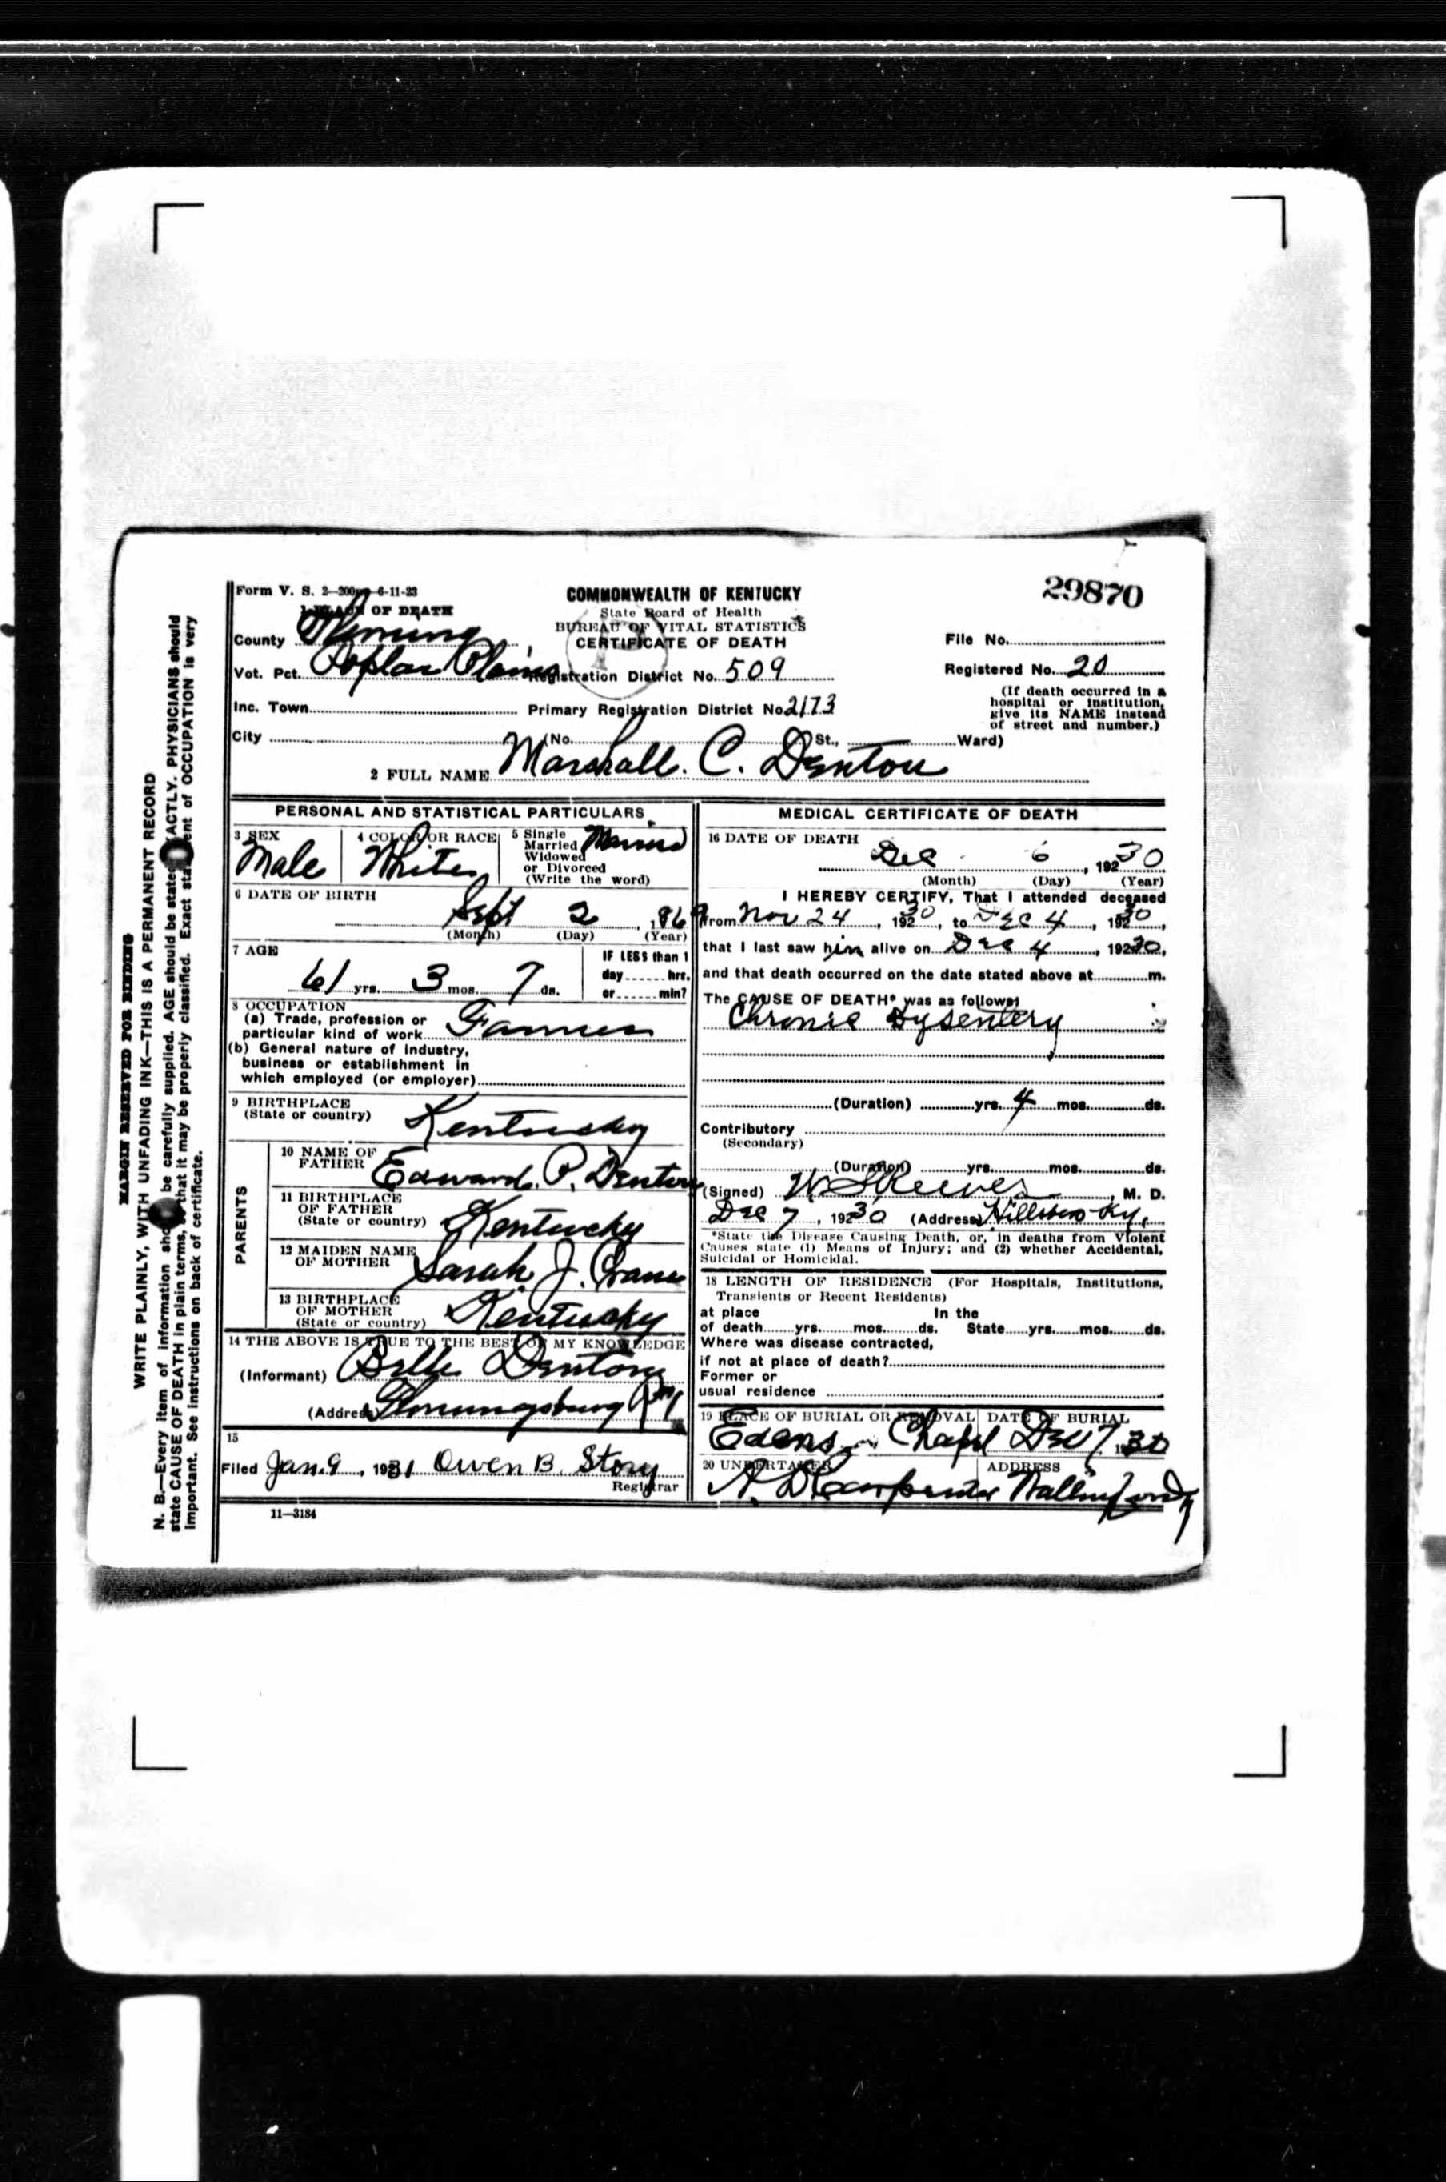 29870
Form V. S. 2—200m—6-11-23
COMMONWEALTH OF KENTUCKY
State Board of Health
BUREAU OF VITAL STATISTICS
CERTIFICATE OF DEATH
1 PLACE OF DEATH
County Fleming
File No.
Vot. Pct. Poplar Plains Registration District No. 509
Registered No. 20
Inc. Town Primary Registration District No. 2173
(If death occurred in a hospital or institution, give its NAME instead of street and number.)
City (No. St., Ward)
2 FULL NAME Marshall. C. Denton
PERSONAL AND STATISTICAL PARTICULARS
3 SEX Male
4 COLOR OR RACE White
5 Single Married Widowed or Divorced (Write the word) Married
6 DATE OF BIRTH
Sept 2, 1869
(Month) (Day) (Year)
7 AGE
61 yrs. 3 mos. 7 ds.
IF LESS than 1 day hrs. or min?
8 OCCUPATION
(a) Trade, profession or particular kind of work Farmer
(b) General nature of industry, business or establishment in which employed (or employer)
9 BIRTHPLACE (State or country) Kentucky
PARENTS
10 NAME OF FATHER Edward. P. Denton
11 BIRTHPLACE OF FATHER (State or country) Kentucky
12 MAIDEN NAME OF MOTHER Sarah J. Crane
13 BIRTHPLACE OF MOTHER (State or country) Kentucky
14 THE ABOVE IS TRUE TO THE BEST OF MY KNOWLEDGE
(Informant) Belle Denton
(Address) Flemingsburg
15
Filed Jan. 9, 1931 Owen B. Story
Registrar
11—3184
MEDICAL CERTIFICATE OF DEATH
16 DATE OF DEATH
Dec 6, 19230
(Month) (Day) (Year)
I HEREBY CERTIFY, That I attended deceased
from Nov 24, 19230, to Dec 4, 19230,
that I last saw him alive on Dec 4, 19230,
and that death occurred on the date stated above at m.
The CAUSE OF DEATH* was as follows:
Chronic Dysentery
(Duration) yrs. 4 mos. ds.
Contributory
(Secondary)
(Duration) yrs. mos. ds.
(Signed) Reeves, M. D.
Dec 7, 19230 (Address) Hillsboro Ky,
*State the Disease Causing Death, or, in deaths from Violent
Causes state (1) Means of Injury; and (2) whether Accidental,
Suicidal or Homicidal.
18 LENGTH OF RESIDENCE (For Hospitals, Institutions,
Transients or Recent Residents)
at place of death yrs. mos. ds. In the State yrs. mos. ds.
Where was disease contracted,
if not at place of death?
Former or
usual residence
19 PLACE OF BURIAL OR REMOVAL DATE OF BURIAL
Edens Chapel Dec 7 1930
20 UNDERTAKER ADDRESS
A. D. Carpenter Wallingford
MARGIN RESERVED FOR BINDING
WRITE PLAINLY, WITH UNFADING INK—THIS IS A PERMANENT RECORD
N. B.—Every item of information should be carefully supplied. AGE should be stated EXACTLY. PHYSICIANS should
state CAUSE OF DEATH in plain terms, so that it may be properly classified. Exact statement of OCCUPATION is very
important. See instructions on back of certificate.